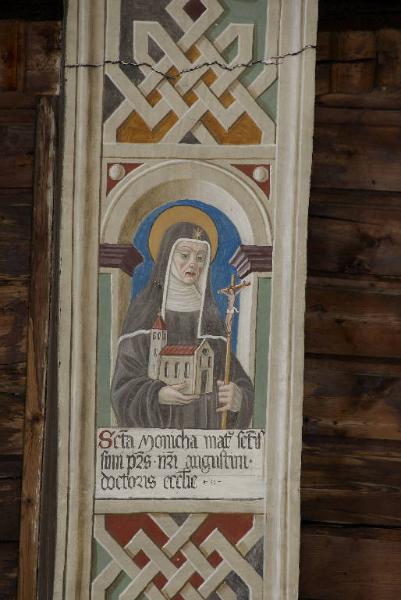 Scta Monicha mat sctis
simi prs nri augustini
doctoris eccle